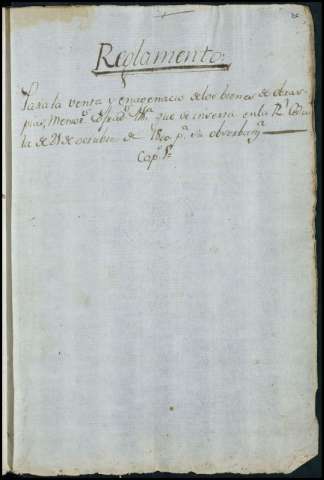 Reglamento
Para la venta y enagenacio de los bienes de obras
pias, Memors. Cofrads. &a. que se inserta en la Rl. Cedu
la de 21 de octubre de 1800 pa. su observanza
Capo. 1o.